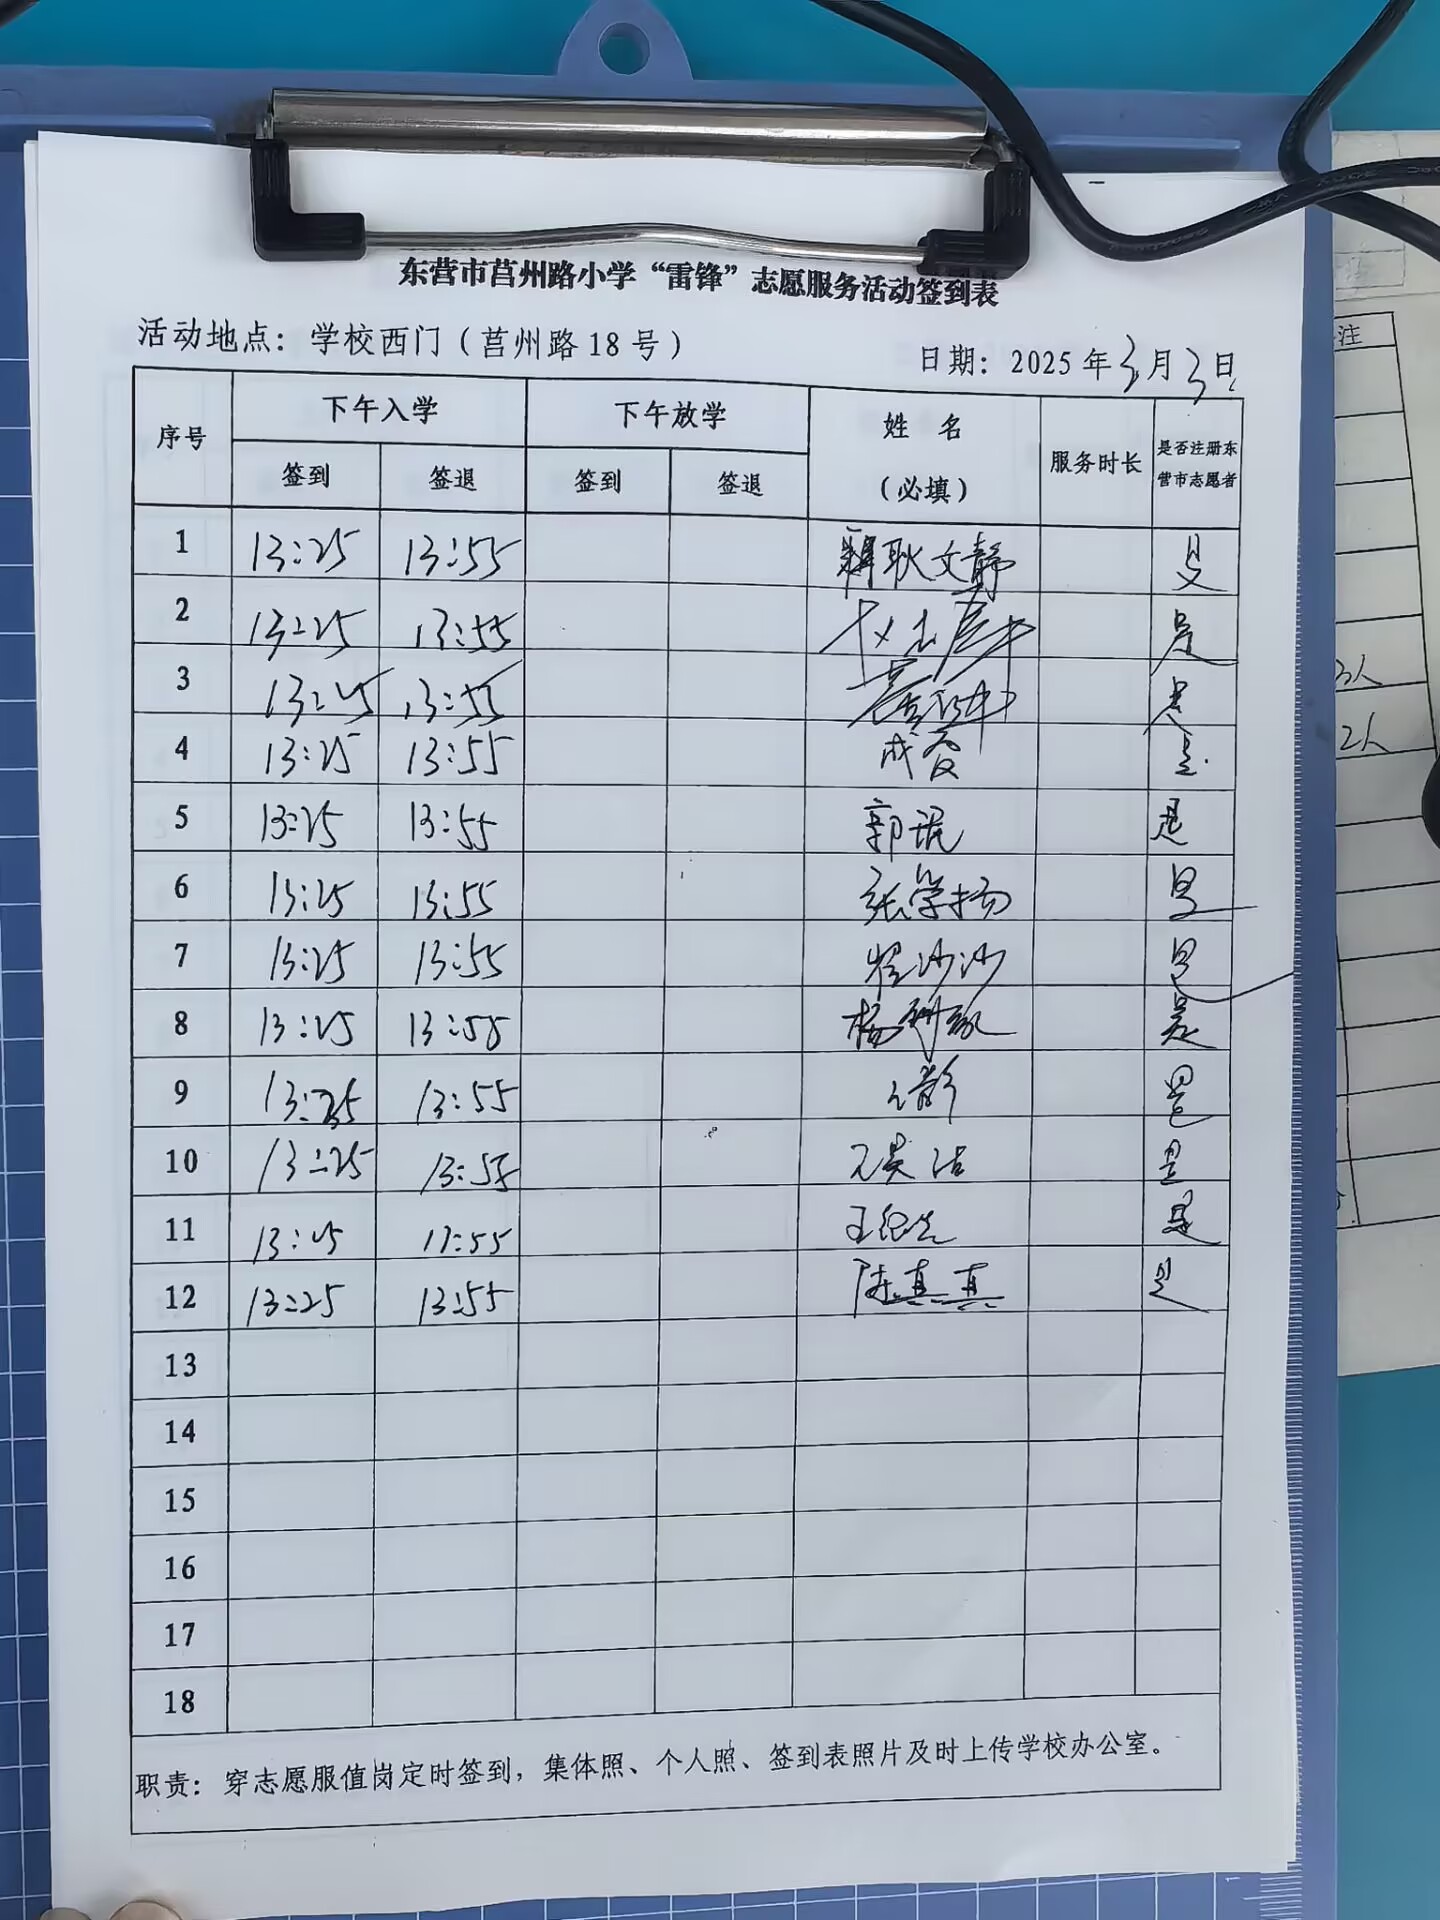 东营市莒州路小学“雷锋”志愿服务活动签到表
活动地点：学校西门（莒州路18号）
日期：2025年3月3日
序号 下午入学 下午放学 姓名（必填） 服务时长 是否注册东营市志愿者
签到 签退 签到 签退
1 13:25 13:55 耿文静 是
2 13:25 13:55 是
3 13:25 13:55 是
4 13:25 13:55 成霞 是
5 13:25 13:55 郭琨 是
6 13:25 13:55 张学扬 是
7 13:25 13:55 沙沙 是
8 13:25 13:55 杨 是
9 13:25 13:55 是
10 13:25 13:55 是
11 13:25 13:55 王 是
12 13:25 13:55 陈真真 是
13
14
15
16
17
18
职责：穿志愿服值岗定时签到，集体照、个人照、签到表照片及时上传学校办公室。
注
2人